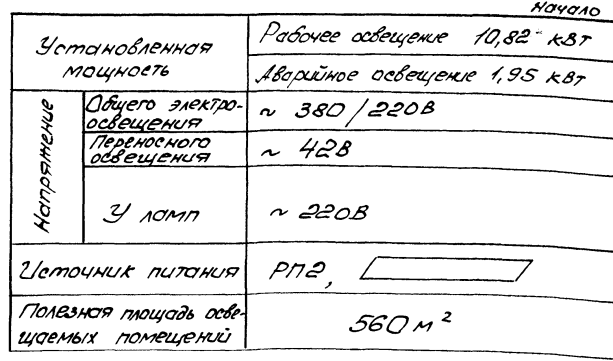 Начало
Установленная
мощность
Рабочее освещение 10,82 кВт
Аварийное освещение 1,95 кВт
Напряжение
Общего электро-
освещения
~ 380/220В
Переносного
освещения
~ 42В
У ламп
~ 220В
Источник питания
РП2,
Полезная площадь осве-
щаемых помещений
560 м²